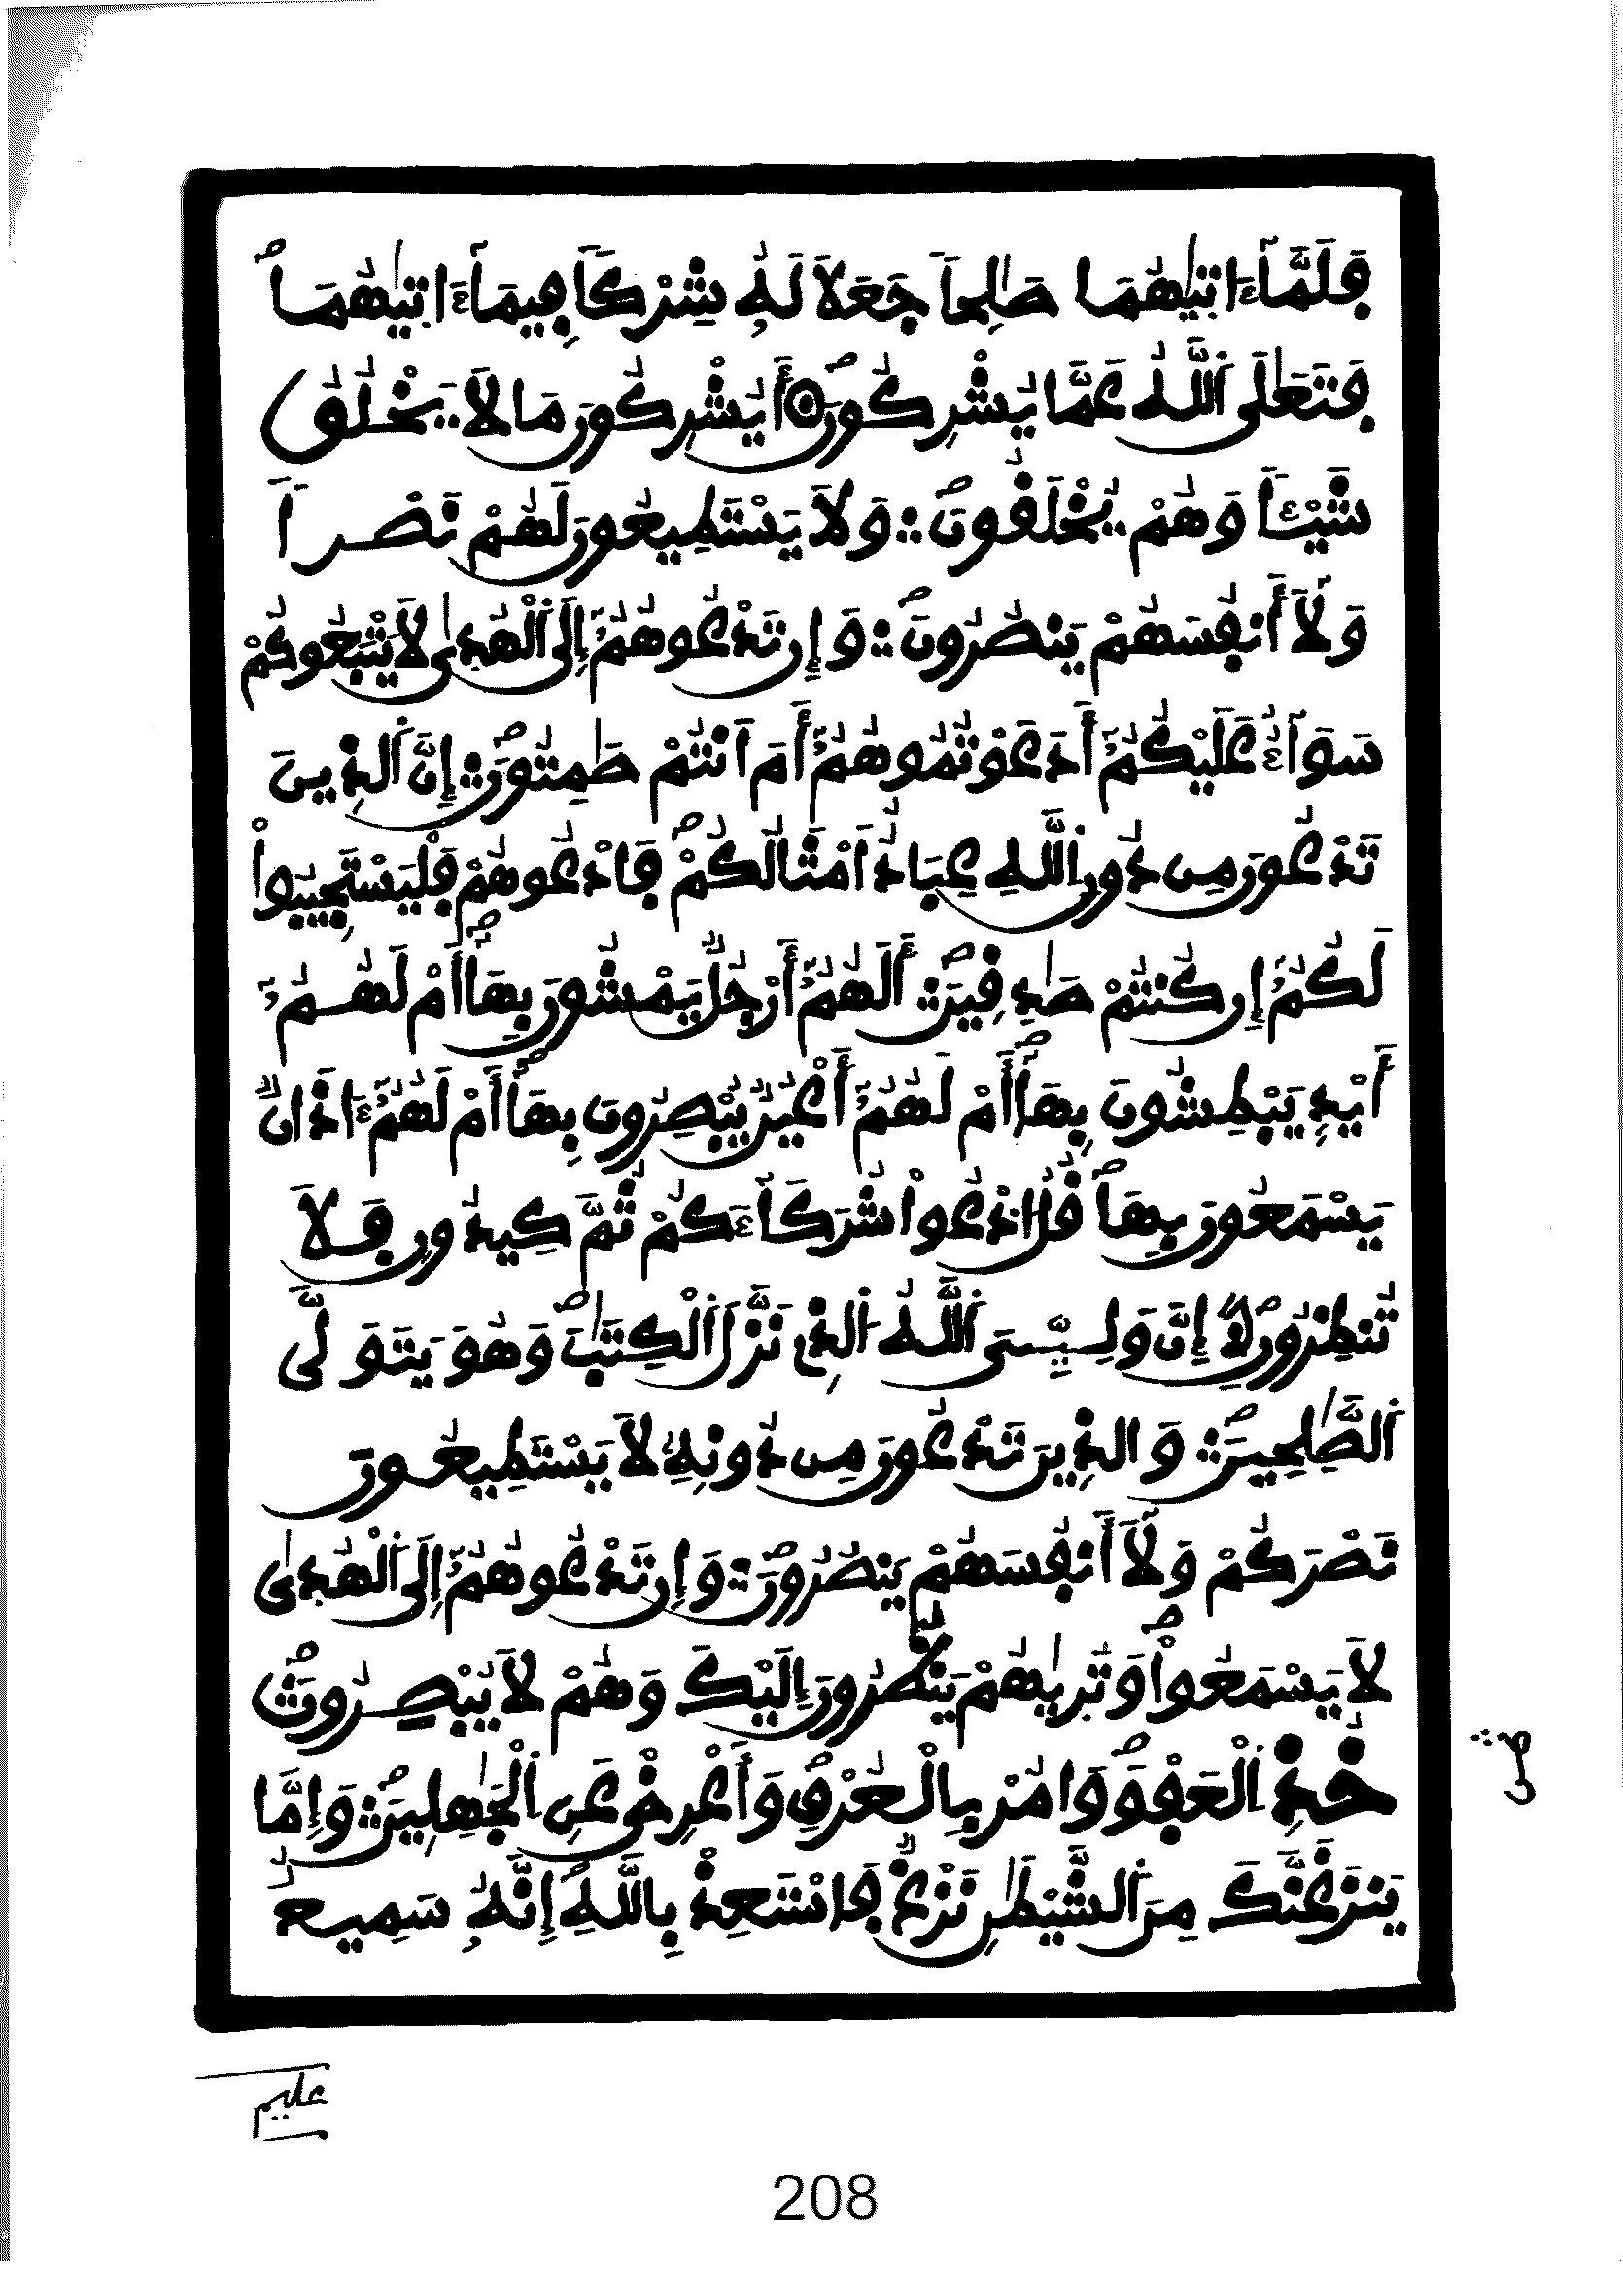 فَلَمَّآ ءَاتَيٰهُمَا صَٰلِحاٗ جَعَلَا لَهُۥ شِرْكاٗ فِيمَآ ءَاتَيٰهُمَاۖ
فَتَعَٰلَى ٱللَّهُ عَمَّا يُشْرِكُونَۖ أَيُشْرِكُونَ مَا لَا يَخْلُقُ
شَيْـٔاٗ وَهُمْ يُخْلَقُونَۖ وَلَا يَسْتَطِيعُونَ لَهُمْ نَصْراٗ
وَلَآ أَنفُسَهُمْ يَنصُرُونَۖ وَإِن تَدْعُوهُمُۥٓ إِلَى ٱلْهُدَىٰ لَا يَتْبَعُوكُمْ
سَوَآءٌ عَلَيْكُمُۥٓ أَدَعَوْتُمُوهُمُۥٓ أَمَ اَنتُمْ صَٰمِتُونَۖ إِنَّ ٱلذِينَ
تَدْعُونَ مِن دُونِ ٱللَّهِ عِبَادٌ اَمْثَالُكُمْۖ فَادْعُوهُمْ فَلْيَسْتَجِيبُواْ
لَكُمُۥٓ إِن كُنتُمْ صَٰدِقِينَۖ أَلَهُمُۥٓ أَرْجُلٌ يَمْشُونَ بِهَآۖ أَمْ لَهُمُۥٓ
أَيْدٍ يَبْطِشُونَ بِهَآۖ أَمْ لَهُمُۥٓ أَعْيُنٌ يُبْصِرُونَ بِهَآۖ أَمْ لَهُمُۥٓ ءَاذَانٌ
يَسْمَعُونَ بِهَاۖ قُلُ اُدْعُواْ شُرَكَآءَكُمْ ثُمَّ كِيدُونِ فَلَا
تُنظِرُونِۖ إِنَّ وَلِـِّيَ ٱللَّهُ ٱلذِي نَزَّلَ ٱلْكِتَٰبَۖ وَهُوَ يَتَوَلَّى
ٱلصَّٰلِحِينَۖ وَالذِينَ تَدْعُونَ مِن دُونِهِۦ لَا يَسْتَطِيعُونَ
نَصْرَكُمْ وَلَآ أَنفُسَهُمْ يَنصُرُونَۖ وَإِن تَدْعُوهُمُۥٓ إِلَى ٱلْهُدَىٰ
لَا يَسْمَعُواْۖ وَتَرَىٰهُمْ يَنظُرُونَ إِلَيْكَ وَهُمْ لَا يُبْصِرُونَۖ
خُذِ ٱلْعَفْوَۖ وَامُرْ بِالْعُرْفِۖ وَأَعْرِضْ عَنِ ٱلْجَٰهِلِينَۖ وَإِمَّا
يَنزَغَنَّكَ مِنَ ٱلشَّيْطَٰنِ نَزْغٌۖ فَاسْتَعِذْ بِاللَّهِۖ إِنَّهُۥ سَمِيعٌ
عليم
208